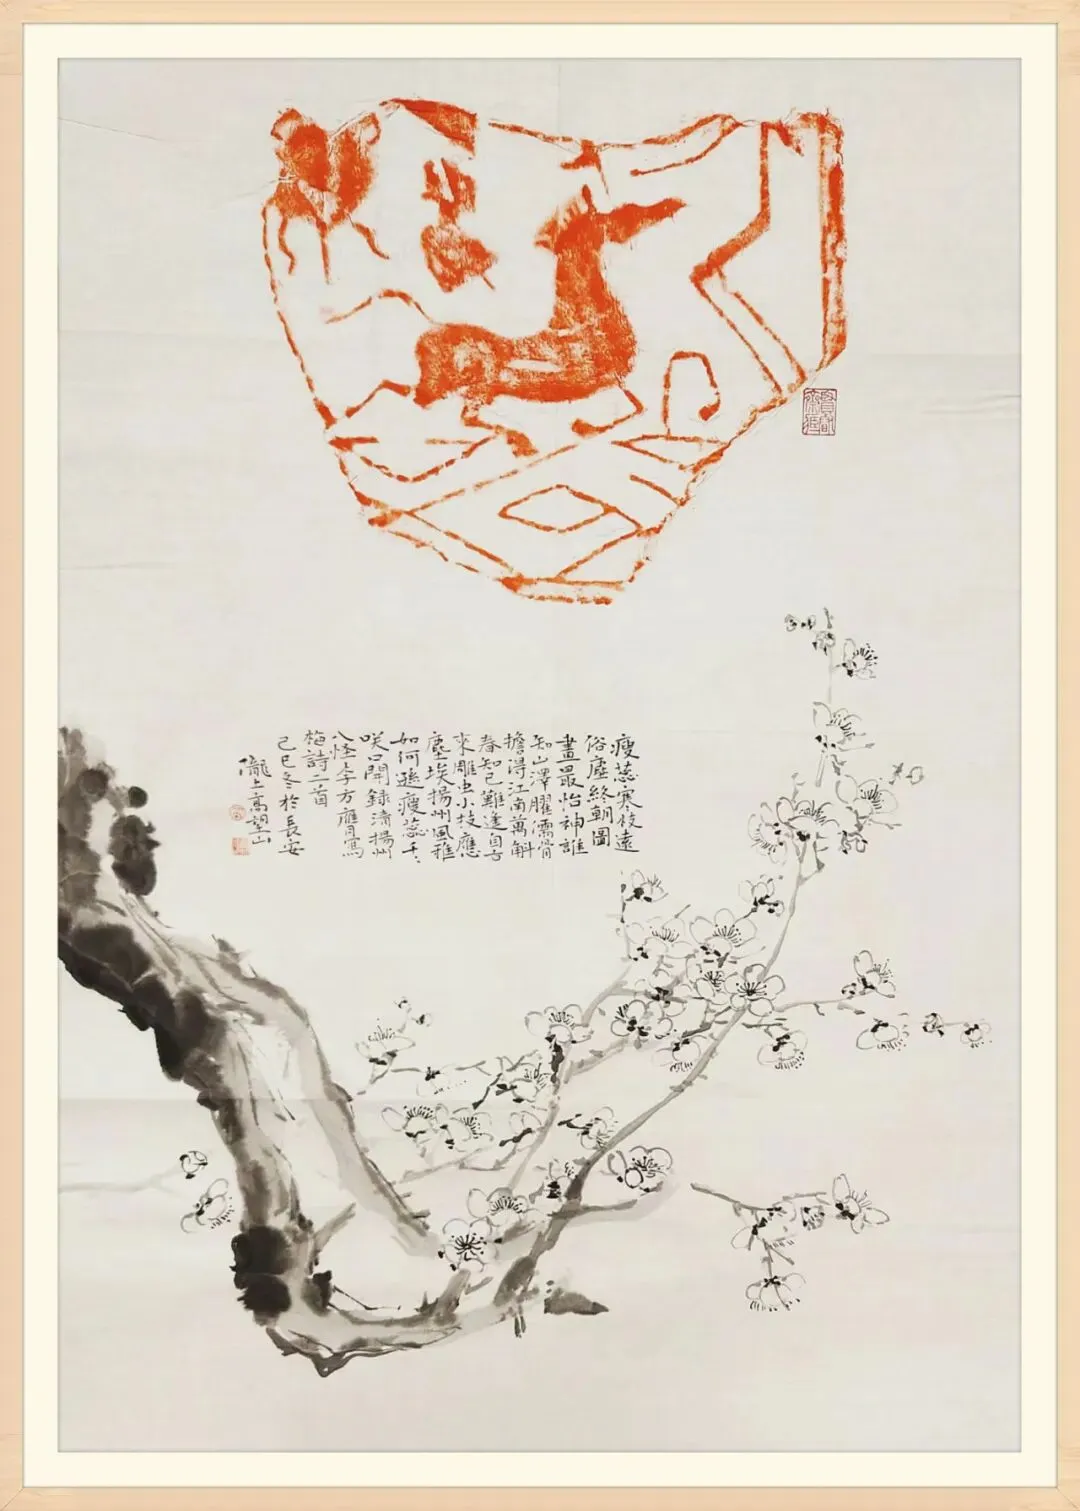 瘦蕊寒枝遠
俗塵終朝圖
畫最怡神誰
知山澤臞儒骨
擔得江南萬斛
春知己難逢自古
來雕虫小技應
塵埃揚州風雅
如何遜瘦蕊千〻
笑口開錄清揚州
八怪李方膺寫
梅詩二首
己巳冬於長安
隴上高望山